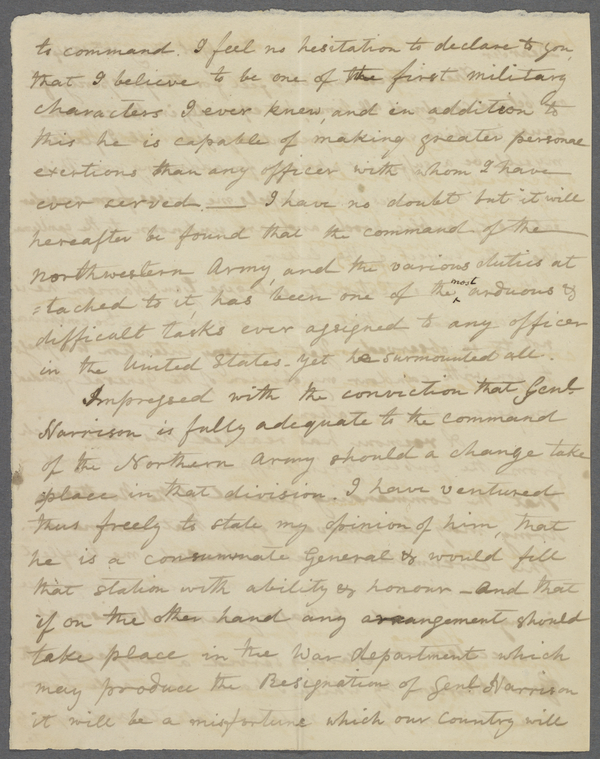 to command. I feel no hesitation to declare to you,
that I believe to be one of the first military
characters I ever knew and in addition to
this he is capable of making greater personal
exertions than any officer with whom I have
ever served. — I have no doubt but it will
hereafter be found that the command of the
northwestern Army, and the various duties at
=tached to it, has been one of the most arduous &
difficult tasks ever assigned to any officer
in the United States. yet he surmounted all.
Impressed with the conviction that Genl.
Harrison is fully adequate to the command
of the Northern Army should a change take
place in that division. I have ventured
thus freely to state my opinion of him, that
he is a consummate General & would fill
that station with ability & honour — and that
if on the other hand any arrangement should
take place in the War department which
may produce the Resignation of Genl. Harrison
it will be a misfortune which our Country will